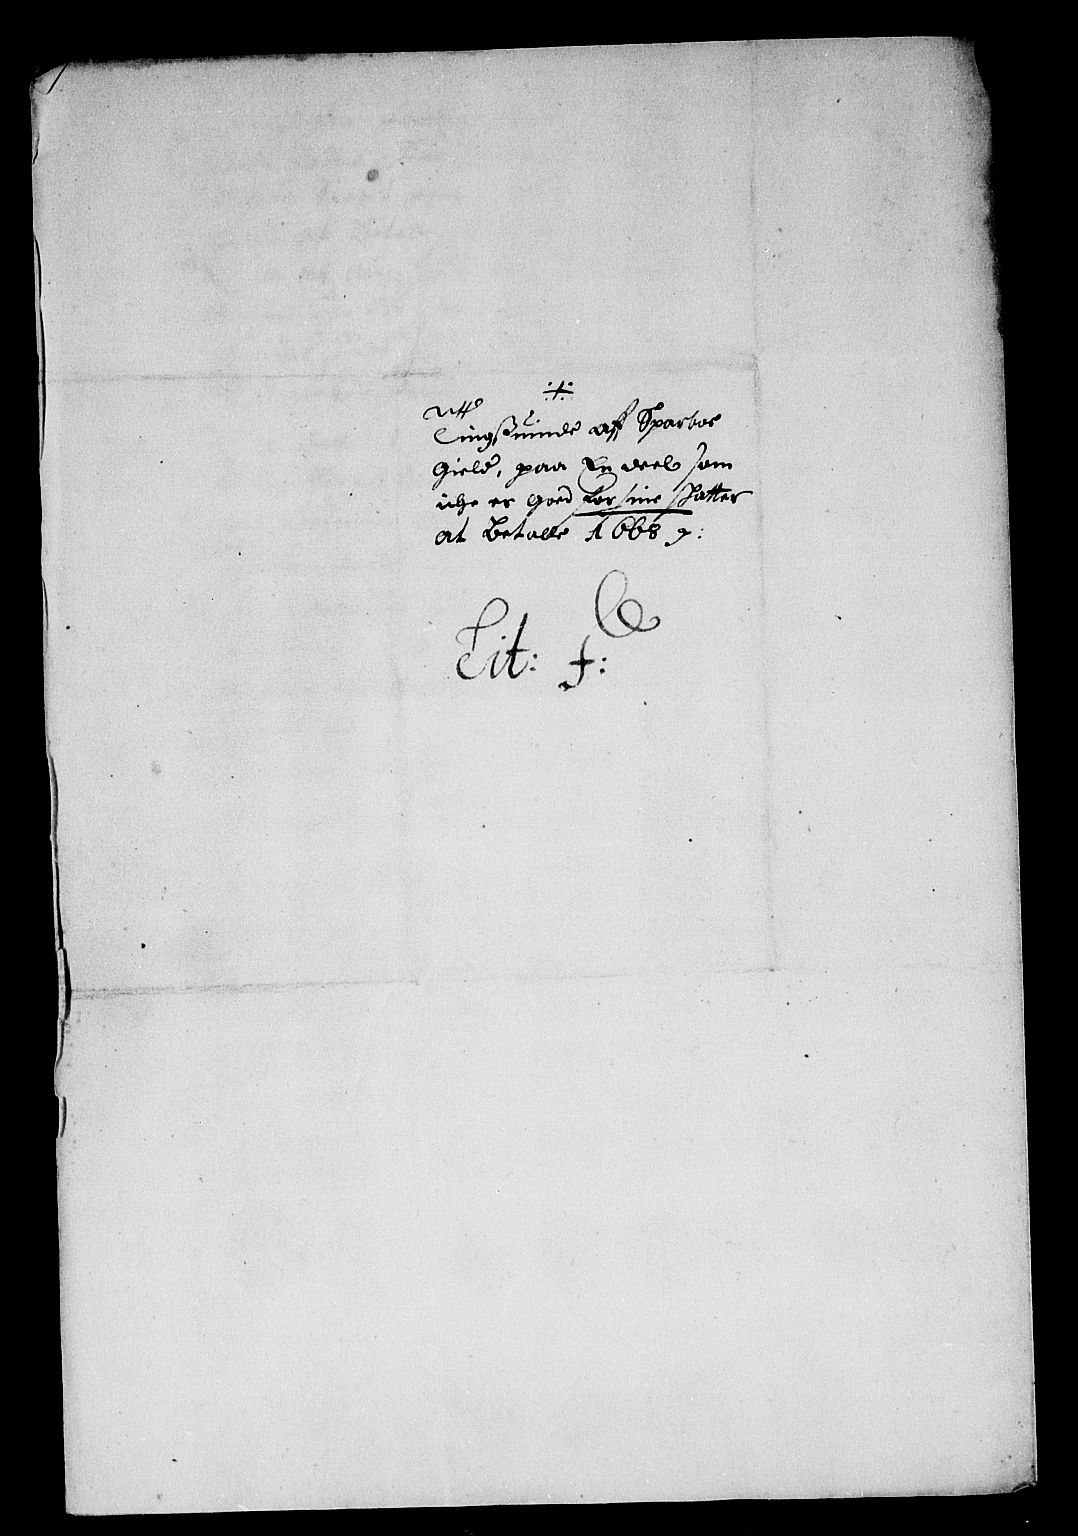 Tingsuinde aff Sparboe
Gield, paa En deel som
iche er goed for sine skatter
at Betalle 1668
Lit: f: